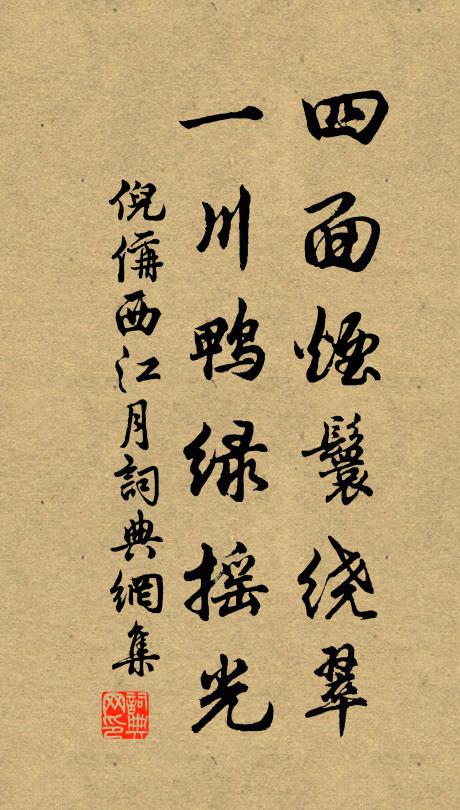 四面煙鬟绕翠
一川鸭绿摇光
倪偁西江月詞典網集
詞典网印